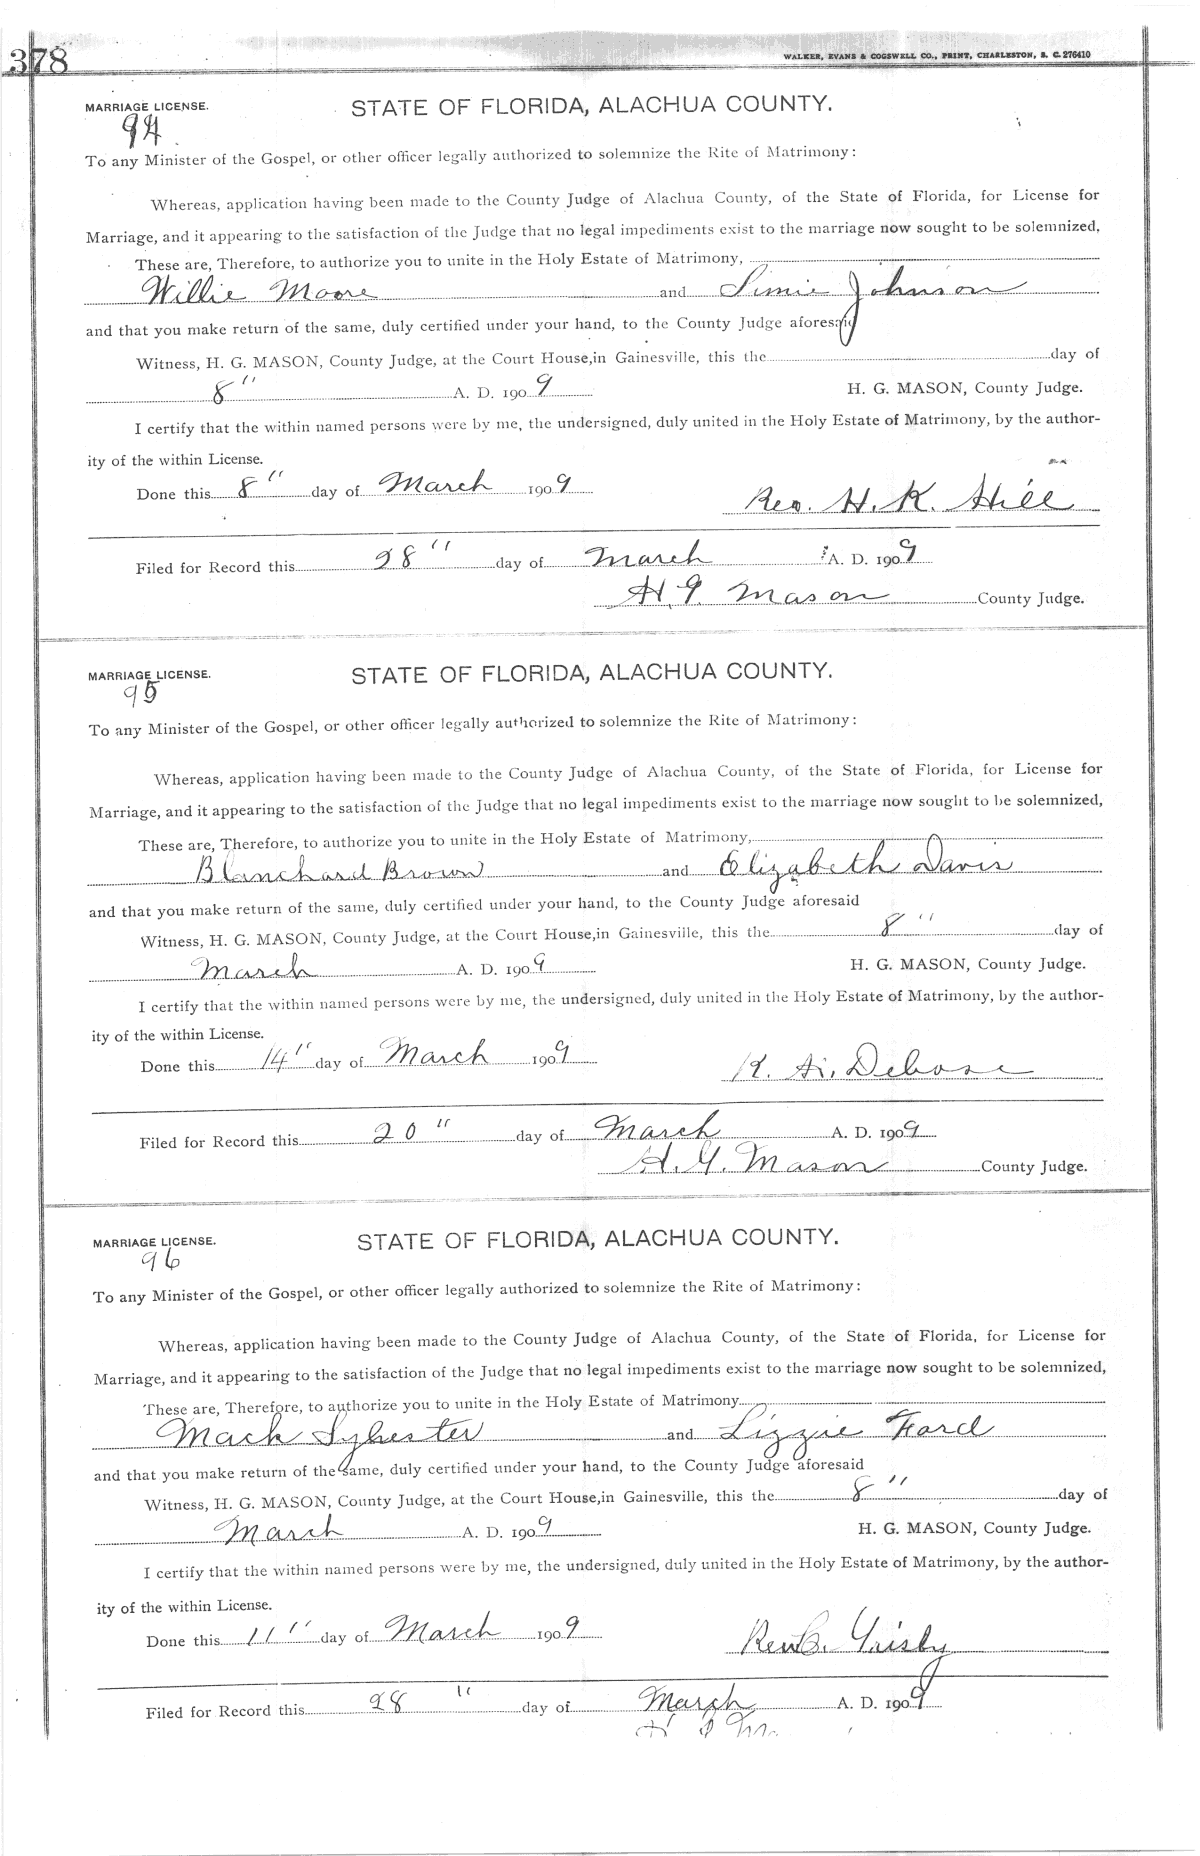 378
WALKER, EVANS & COGSWELL CO., PRINT, CHARLESTON, S. C. 276410
MARRIAGE LICENSE. STATE OF FLORIDA, ALACHUA COUNTY.
94
To any Minister of the Gospel, or other officer legally authorized to solemnize the Rite of Matrimony:
Whereas, application having been made to the County Judge of Alachua County, of the State of Florida, for License for
Marriage, and it appearing to the satisfaction of the Judge that no legal impediments exist to the marriage now sought to be solemnized,
These are, Therefore, to authorize you to unite in the Holy Estate of Matrimony,
Willie Moore and Simie Johnson
and that you make return of the same, duly certified under your hand, to the County Judge aforesaid
Witness, H. G. MASON, County Judge, at the Court House, in Gainesville, this the day of
8" A. D. 1909 H. G. MASON, County Judge.
I certify that the within named persons were by me, the undersigned, duly united in the Holy Estate of Matrimony, by the author-
ity of the within License.
Done this 8" day of March 1909
Rev. H. K. Hill
Filed for Record this 28" day of March A. D. 1909
H. G. Mason County Judge.
MARRIAGE LICENSE. STATE OF FLORIDA, ALACHUA COUNTY.
95
To any Minister of the Gospel, or other officer legally authorized to solemnize the Rite of Matrimony:
Whereas, application having been made to the County Judge of Alachua County, of the State of Florida, for License for
Marriage, and it appearing to the satisfaction of the Judge that no legal impediments exist to the marriage now sought to be solemnized,
These are, Therefore, to authorize you to unite in the Holy Estate of Matrimony,
Blanchard Brown and Elizabeth Davis
and that you make return of the same, duly certified under your hand, to the County Judge aforesaid
Witness, H. G. MASON, County Judge, at the Court House, in Gainesville, this the 8" day of
March A. D. 1909 H. G. MASON, County Judge.
I certify that the within named persons were by me, the undersigned, duly united in the Holy Estate of Matrimony, by the author-
ity of the within License.
Done this 14" day of March 1909
K. Debose
Filed for Record this 20" day of March A. D. 1909
H. G. Mason County Judge.
MARRIAGE LICENSE. STATE OF FLORIDA, ALACHUA COUNTY.
96
To any Minister of the Gospel, or other officer legally authorized to solemnize the Rite of Matrimony:
Whereas, application having been made to the County Judge of Alachua County, of the State of Florida, for License for
Marriage, and it appearing to the satisfaction of the Judge that no legal impediments exist to the marriage now sought to be solemnized,
These are, Therefore, to authorize you to unite in the Holy Estate of Matrimony
Mack Sylvester and Lizzie Ford
and that you make return of the same, duly certified under your hand, to the County Judge aforesaid
Witness, H. G. MASON, County Judge, at the Court House, in Gainesville, this the 8" day of
March A. D. 1909 H. G. MASON, County Judge.
I certify that the within named persons were by me, the undersigned, duly united in the Holy Estate of Matrimony, by the author-
ity of the within License.
Done this 11" day of March 1909
Rev C. Grisby
Filed for Record this 28" day of March A. D. 1909